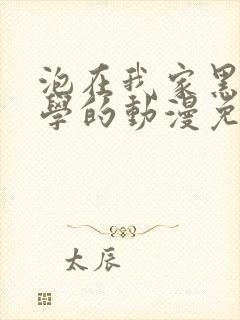 泡在我家黑
學的動漫免
太辰